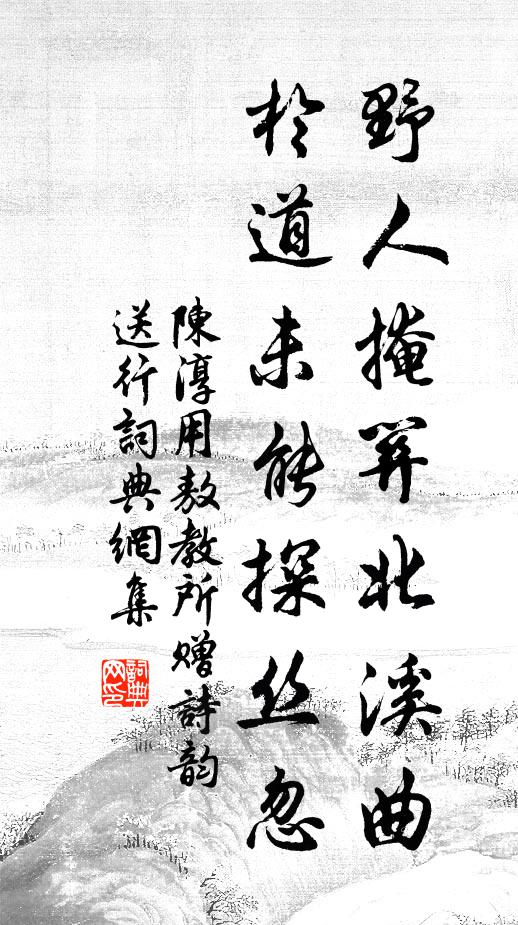 野人掩算北溪曲
於道未能探丝忽
陳淳用敖教所贈詩韵
送行詞典網集
詞典网印